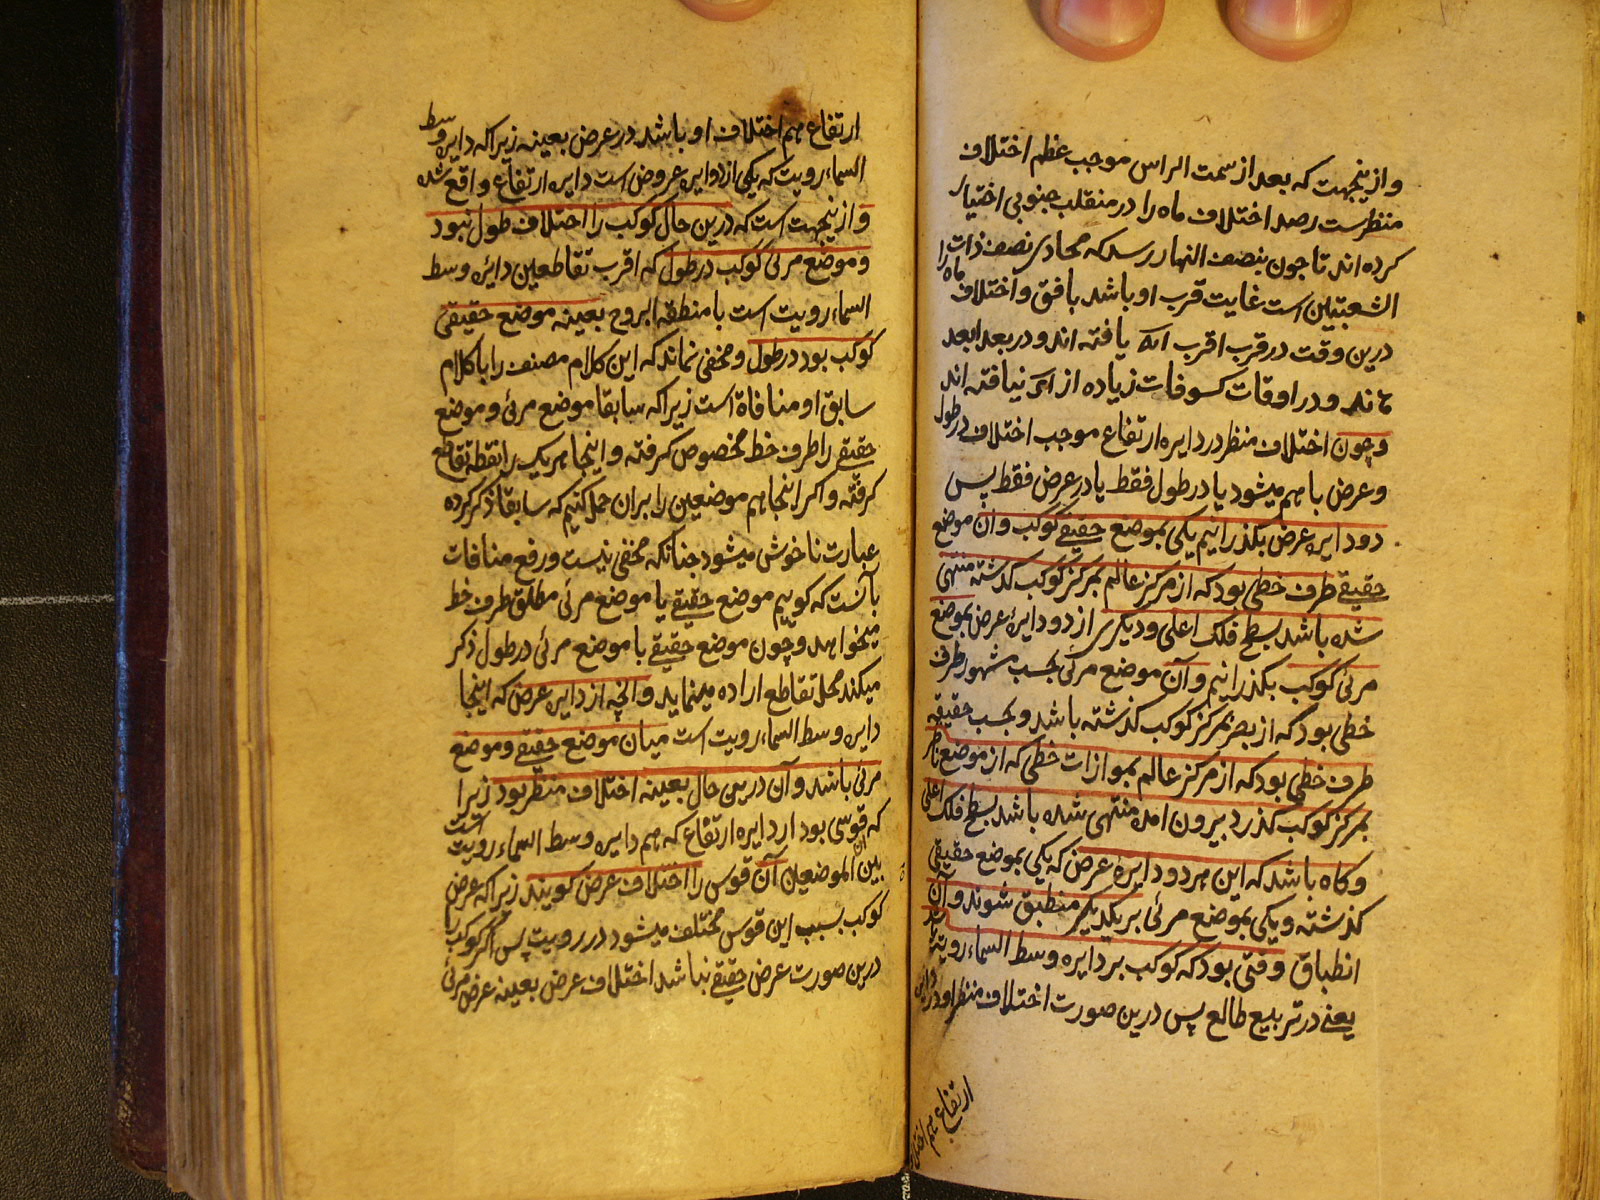 وازینجهت که بعد از سمت الراس موجب عظم اختلاف
منظرست رصد اختلاف ماه را در منقلب جنوبی اختیار
کرده اند تا جون بنصف النهار رسد که محاذی نصف ذات
الشعبتین است غایت قرب او باشد بافق و اختلاف ماه را
درین وقت در قرب اقرب یافته اند و در بعد ابعد
و در اوقات کسوفات زیاده از نیافته اند
وچون اختلاف منظر در دایره ارتفاع موجب اختلاف در طول
و عرض باهم میشود یا در طول فقط یا در عرض فقط پس
دو دایره عرض بکذرانیم یکی بموضع حقیقی کوکب وآن موضع
حقیقی طرف خطی بود که از مرکز عالم بمرکز کوکب کذشته منتهی
شده باشد بسطح فلک اعلی و دیکری از دو دایرۀ عرض بموضع
مرئی کوکب بکذرانیم وآن موضع مرئی بحسب مشهور طرف
خطی بود که از بصر بمرکز کوکب کذشته باشد و بحسب حقیقه
طرف خطی بود که از مرکز عالم بموازات خطی که از موضع ناظر
بمرکز کوکب کذرد بیرون امده منتهی شده باشد بسطح فلک اعلی
وکاه باشد که این هر دو دایره عرض که یکی بموضع حقیقی
کذشته و یکی بموضع مرئی بر یکدیکر منطبق شوند وآن
انطباق وقتی بود که کوکب بر دایره وسط السماء رویت بود
یعنی در تربیع طالع پس درین صورت اختلاف منظر او در دایره
ارتفاع هم اختلاف
ارتفاع هم اختلاف او باشد در عرض بعینه زیرا که دایره وسط
السماء رویت که یکی از دوایر عروض است دایره ارتفاع واقع شده
وازینجهت است که درین حال کوکب را اختلاف طول نبود
وموضع مرئی کوکب در طول که اقرب تقاطعین دائره وسط
السماء رویت است با منطقه البروج بعینه موضع حقیقی
کوکب بود در طول ومخفی نماند که این کلام مصنف را با کلام
سابق او منافاة است زیرا که سابقا موضع مرئی و موضع
حقیقی را طرف خط مخصوص کرفته و اینجا هر یک را نقطه تقاطع
کرفته و اکر اینجا هم موضعین را بران حمل کنیم که سابقا ذکر کرده
عبارت ناخوش میشود جنانکه مخفی نیست و رفع منافات
بآنست که کوییم موضع حقیقی یا موضع مرئی مطلق طرف خط
میخواهد و چون موضع حقیقی یا موضع مرئی در طول ذکر
میکند محل تقاطع اراده مینماید وانچه از دایره عرض که اینجا
دایره وسط السماء رویت است میان موضع حقیقی و موضع
مرئی باشد وآن درین حال بعینه اختلاف منظر بود زیرا
که قوسی بود از دایره ارتفاع که هم دایره وسط السماء رویت است
بین الموضعین آن قوس را اختلاف عرض کویند زیرا که عرض
کوکب بسبب این قوس مختلف میشود در رویت پس اکر کوکب را
درین صورت عرض حقیقی نباشد اختلاف عرض بعینه عرض مرئی